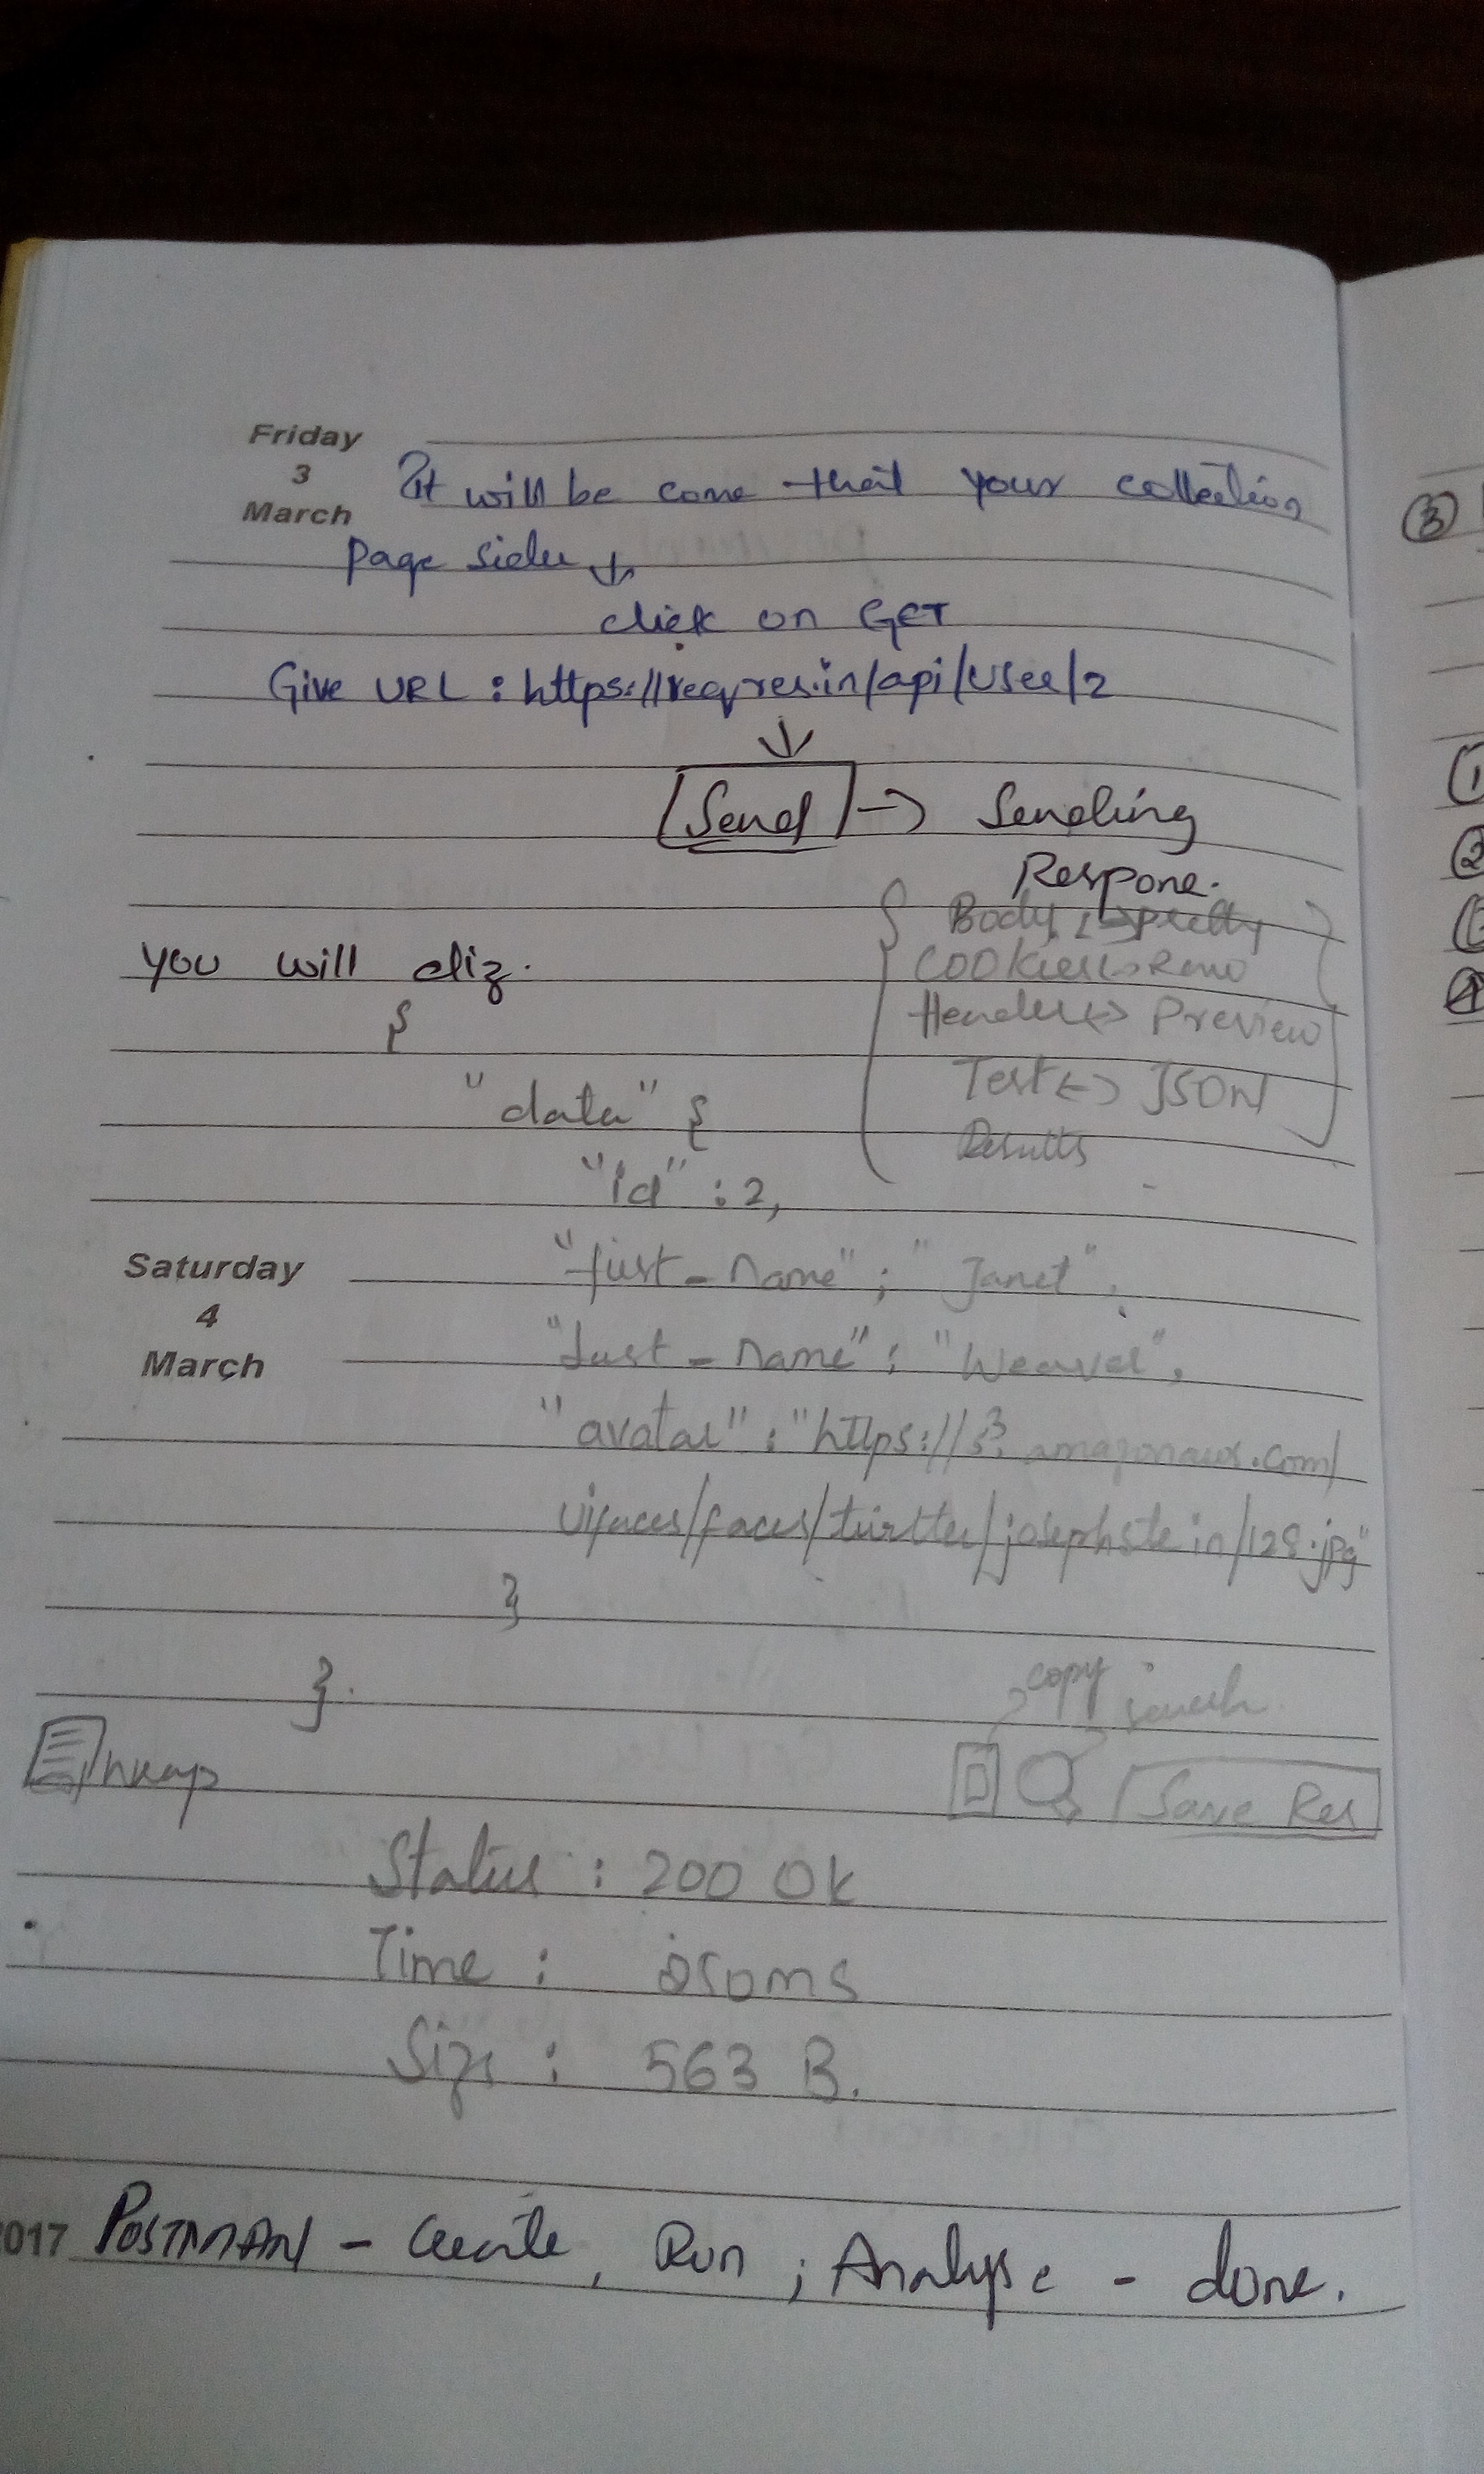 Friday
3
March
It will be come that your collection
page side ↓
click on GET
Give URL : https://reqres.in/api/user/2
↓
Send → Sending
Respone.
{ Body, → pretty
Cookies ↔ Raw
Header ↔ Preview
Test ↔ JSON
Results
you will
{
"data" {
"id" : 2,
Saturday
4
March
"first_name" ; "Janet",
"Last_name" : "Weaver",
"avatar" : "https://s3.amazonaws.com/
uifaces/faces/twitter/josephstein/128.jpg"
}
}.
copy search
wrap
Save Res
Status : 200 Ok
Time : 250ms
Size : 563 B.
2017
POSTMAN - Create, Run ; Analyse - done.
3
1
2
4